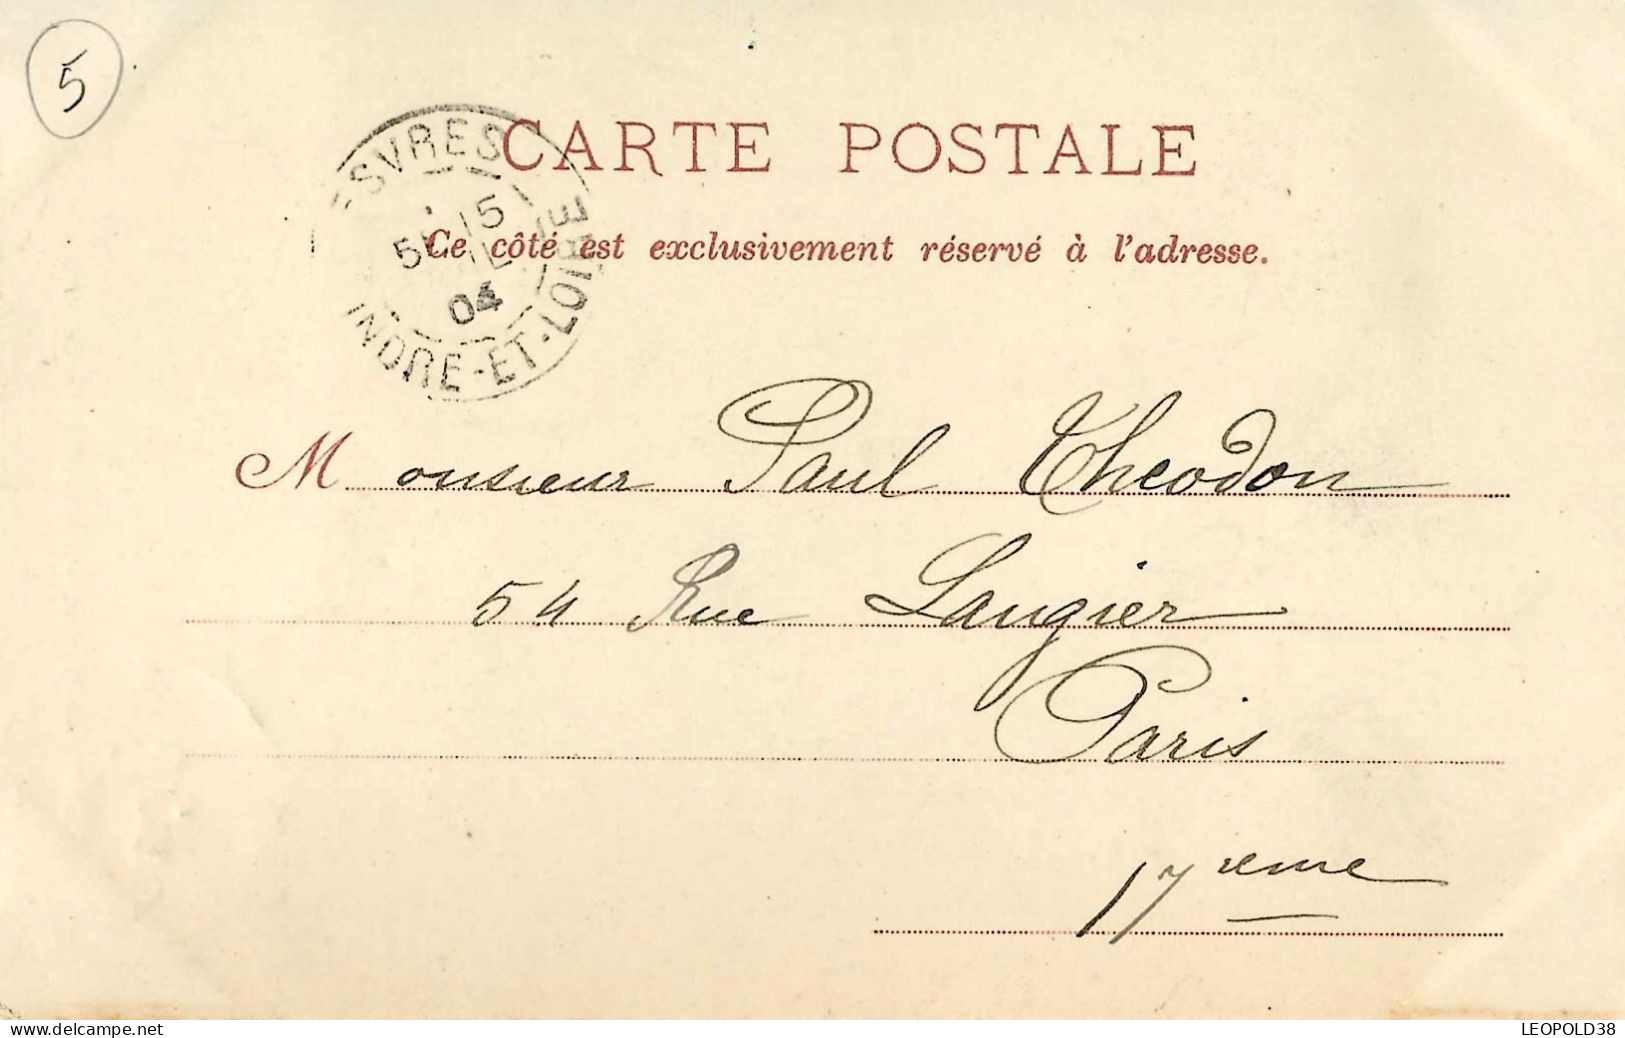 5
CARTE POSTALE
Ce côté est exclusivement réservé à l'adresse.
ESVRES
15
04
INDRE-ET-LOIRE
Monsieur Paul Theodon
54 Rue Laugier
Paris
17 eme
www.delcampe.net
LEOPOLD38